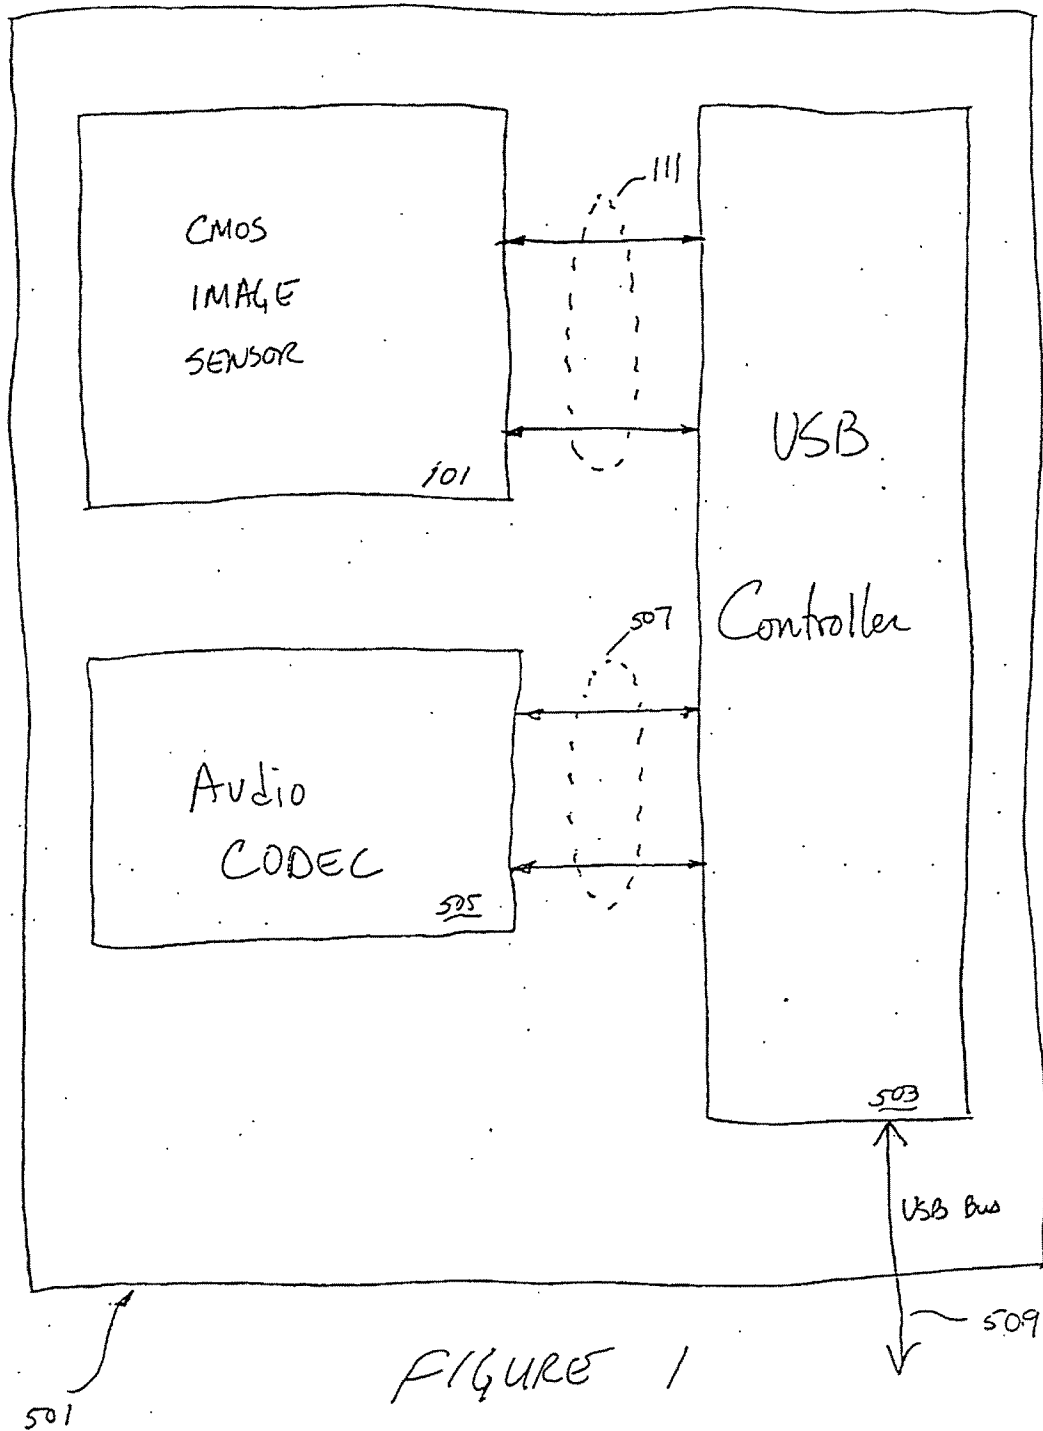 111
CMOS
IMAGE
SENSOR
101
USB
Controller
507
Audio
CODEC
505
503
USB Bus
509
FIGURE 1
501